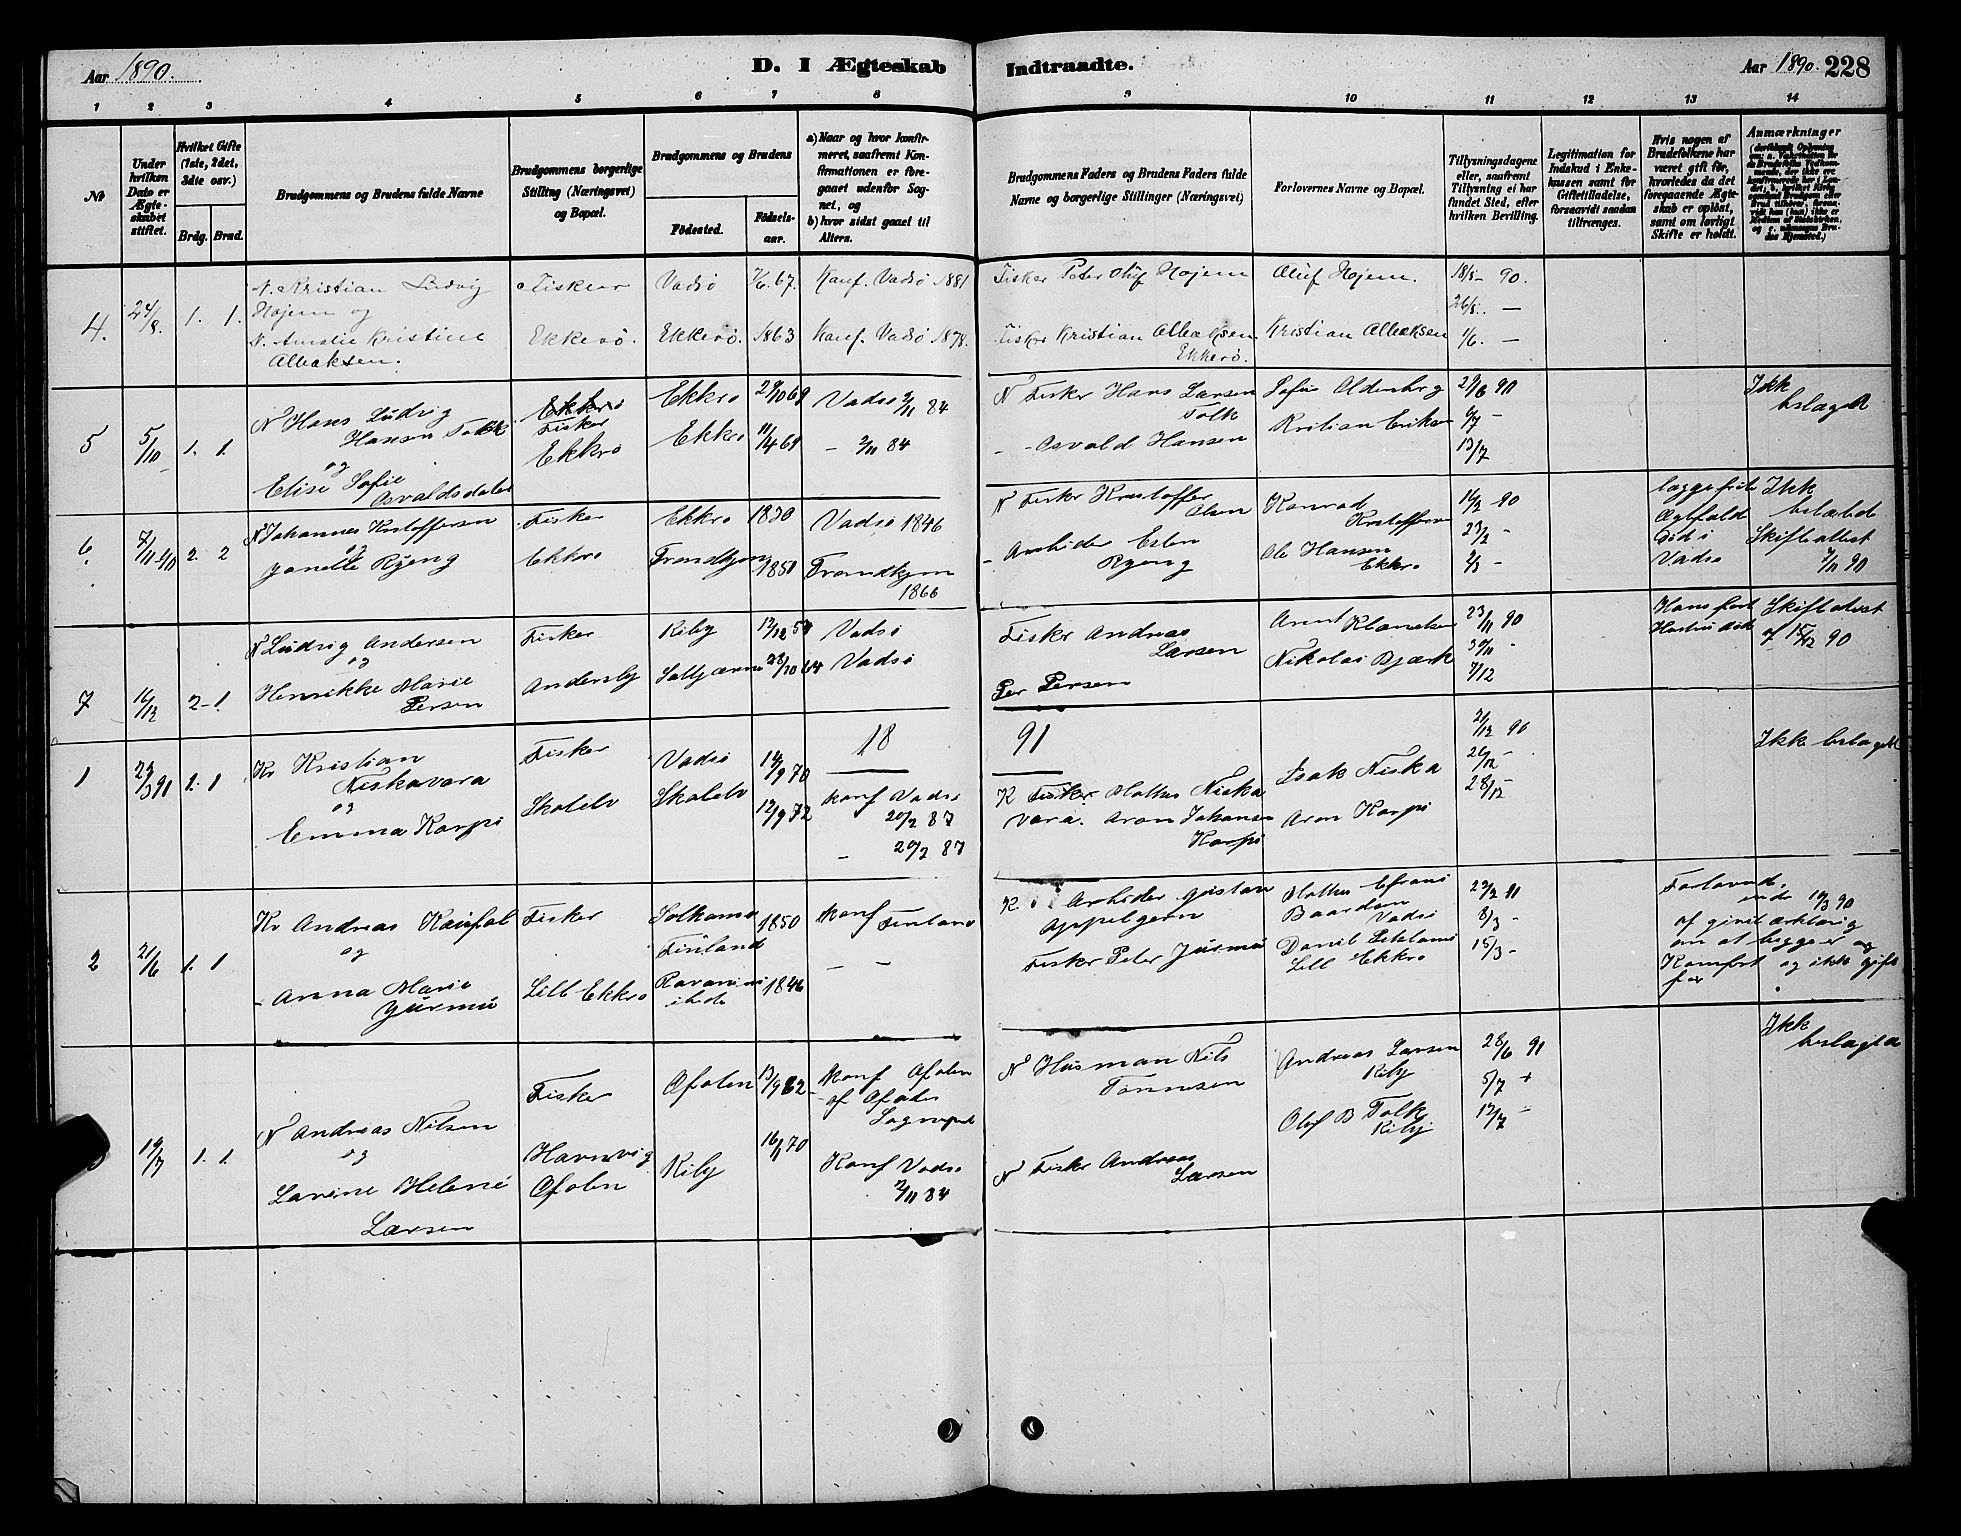 Aar 1890.
D. I Ægteskab
Indtraadte.
Aar 1890. 228
1 2 3 4 5 6 7 8 9 10 11 12 13 14
No
Under hvilken Dato er Ægteskabet stiftet.
Hvilket Gifte (1ste, 2det, 3die osv.)
Brdg. Brud.
Brudgommens og Brudens fulde Navne
Brudgommens borgerlige Stilling (Næringsvei) og Bopæl.
Brudgommens og Brudens
Fødested.
Fødselsaar.
a) Naar og hvor konfirmeret, saafremt Konfirmationen er foregaaet udenfor Sognet, og
b) hvor sidst gaaet til Alters.
Brudgommens Faders og Brudens Faders fulde Navne og borgerlige Stillinger (Næringsvei)
Forlovernes Navne og Bopæl.
Tillysningsdagene eller, saafremt Tillysning ei har fundet Sted, efter hvilken Bevilling.
Legitimation for Indskud i Enkekassen samt for Giftetilladelse, forsaavidt saadan tiltrænges.
Hvis nogen af Brudefolkene har været gift før, hvorledes da det foregaaende Ægteskab er opløst, samt om lovligt Skifte er holdt.
Anmærkninger
4. 24/8. 1. 1.
N. Kristian Ludvig
Højem og
N. Amalie Kristine
Albeaksen.
Fisker
Ekkerö.
Vadsö
Ekkerö.
/6. 67.
1863
Konf. Vadsö 1881
Konf. Vadsö 1878.
Fisker Peter Oluf Højem
Fisker Kristian Albeaksen
Ekkerö.
Oluf Højem.
Kristian Albeaksen
18/5 90.
26/5. —
1/6. —
5 5/10 1. 1.
N Hans Ludvig
Hansen Tolk
og
Elise Sofie
Osvaldsdatter
Ekkrö
Fisker
Ekkrö
Ekkrö
Ekkrö
29/10 69
11/4 69
Vadsö 2/11 84
— 2/11 84
N Fisker Hans Larsen
Tolk
- - Osvald Hansen
Sofus Oldenbrg
Kristian Eriksen
29/6 90
6/7 -
13/7
Ikk
beslægted
6. 7/11 90 2. 2
N Johannes Kristoffersen
og
Janette Ryeng
Fisker
Ekkrö
Ekkrö
Trondhjem
1830
1850
Vadsö 1846
Trondhjem
1866
N Fisker Kristoffer
Olsen
- Arbider Esten
Ryeng
Konrad
Kristoffersen
Ole Hansen
Ekkrö
16/2 90
23/2 -
2/3 -
begge
død i
Vadsö
Ikk
Skifteattest
/11 90
7 16/12 2-1.
N Ludvig Andersen
og
Henrikke Marie
Persen
Fisker
Andersby
Kiby
12/12 59
28/10 64
Vadsö
Vadsö
Fisker Andreas
Larsen
Per Persen
Arent Klemetsen
Nikolai Bjærk
23/11 90
30/11 -
7/12
Hans først
Hustru död
Skifteattest
af 15/12 90
18 91
1 29/3 91 1. 1
Kv Kristian
Niskavara
og
Emma Karpi
Fisker
Skalelv
Vadsö
Skalelv
14/9 70
12/9 72
Konf Vadsö
20/2 87
— 20/2 87
K Fisker Mathis Niska
vara. Aron Johansen
Karpi
Isak Niska
Aron Karpi
21/12 90
26/12 -
28/12 -
Ikke beslægted
2 21/6 1. 1
Kv Andreas
og
- Anna Marie
Jurmu
Fisker
Lill Ekkrö
Finland
1850
1846
Konf Finland
— —
K Arbider Gustav
Appelgren
Fisker Peter Jurmu
Vadsö
Lill Ekkrö
22/2 91
8/3 -
15/3 -
19/3 90
om at begge er
og ikke gift
før
19/7 1. 1.
N Andreas Nilsen
og
Lavine Helene
Larsen
Fisker
Havnvig
Ofoten
Ofoten
Kiby
13/9 62
16/1 70
Konf Ofoten
af Ofoten
Sogneprest
Konf Vadsö
2/11 84
N Husman Nils
Tønnesen
N Fisker Andreas
Larsen
Andreas Larsen
Kiby
Olof B Tolk
Kiby
28/6 91
5/7 +
12/7 -
Ikk
beslægted